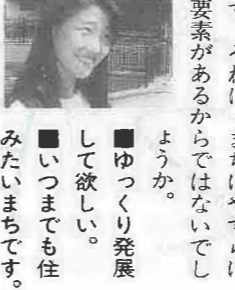 要素があるからではないでし
ょうか。
■ゆっくり発展
して欲しい。
■いつまでも住
みたいまちです。